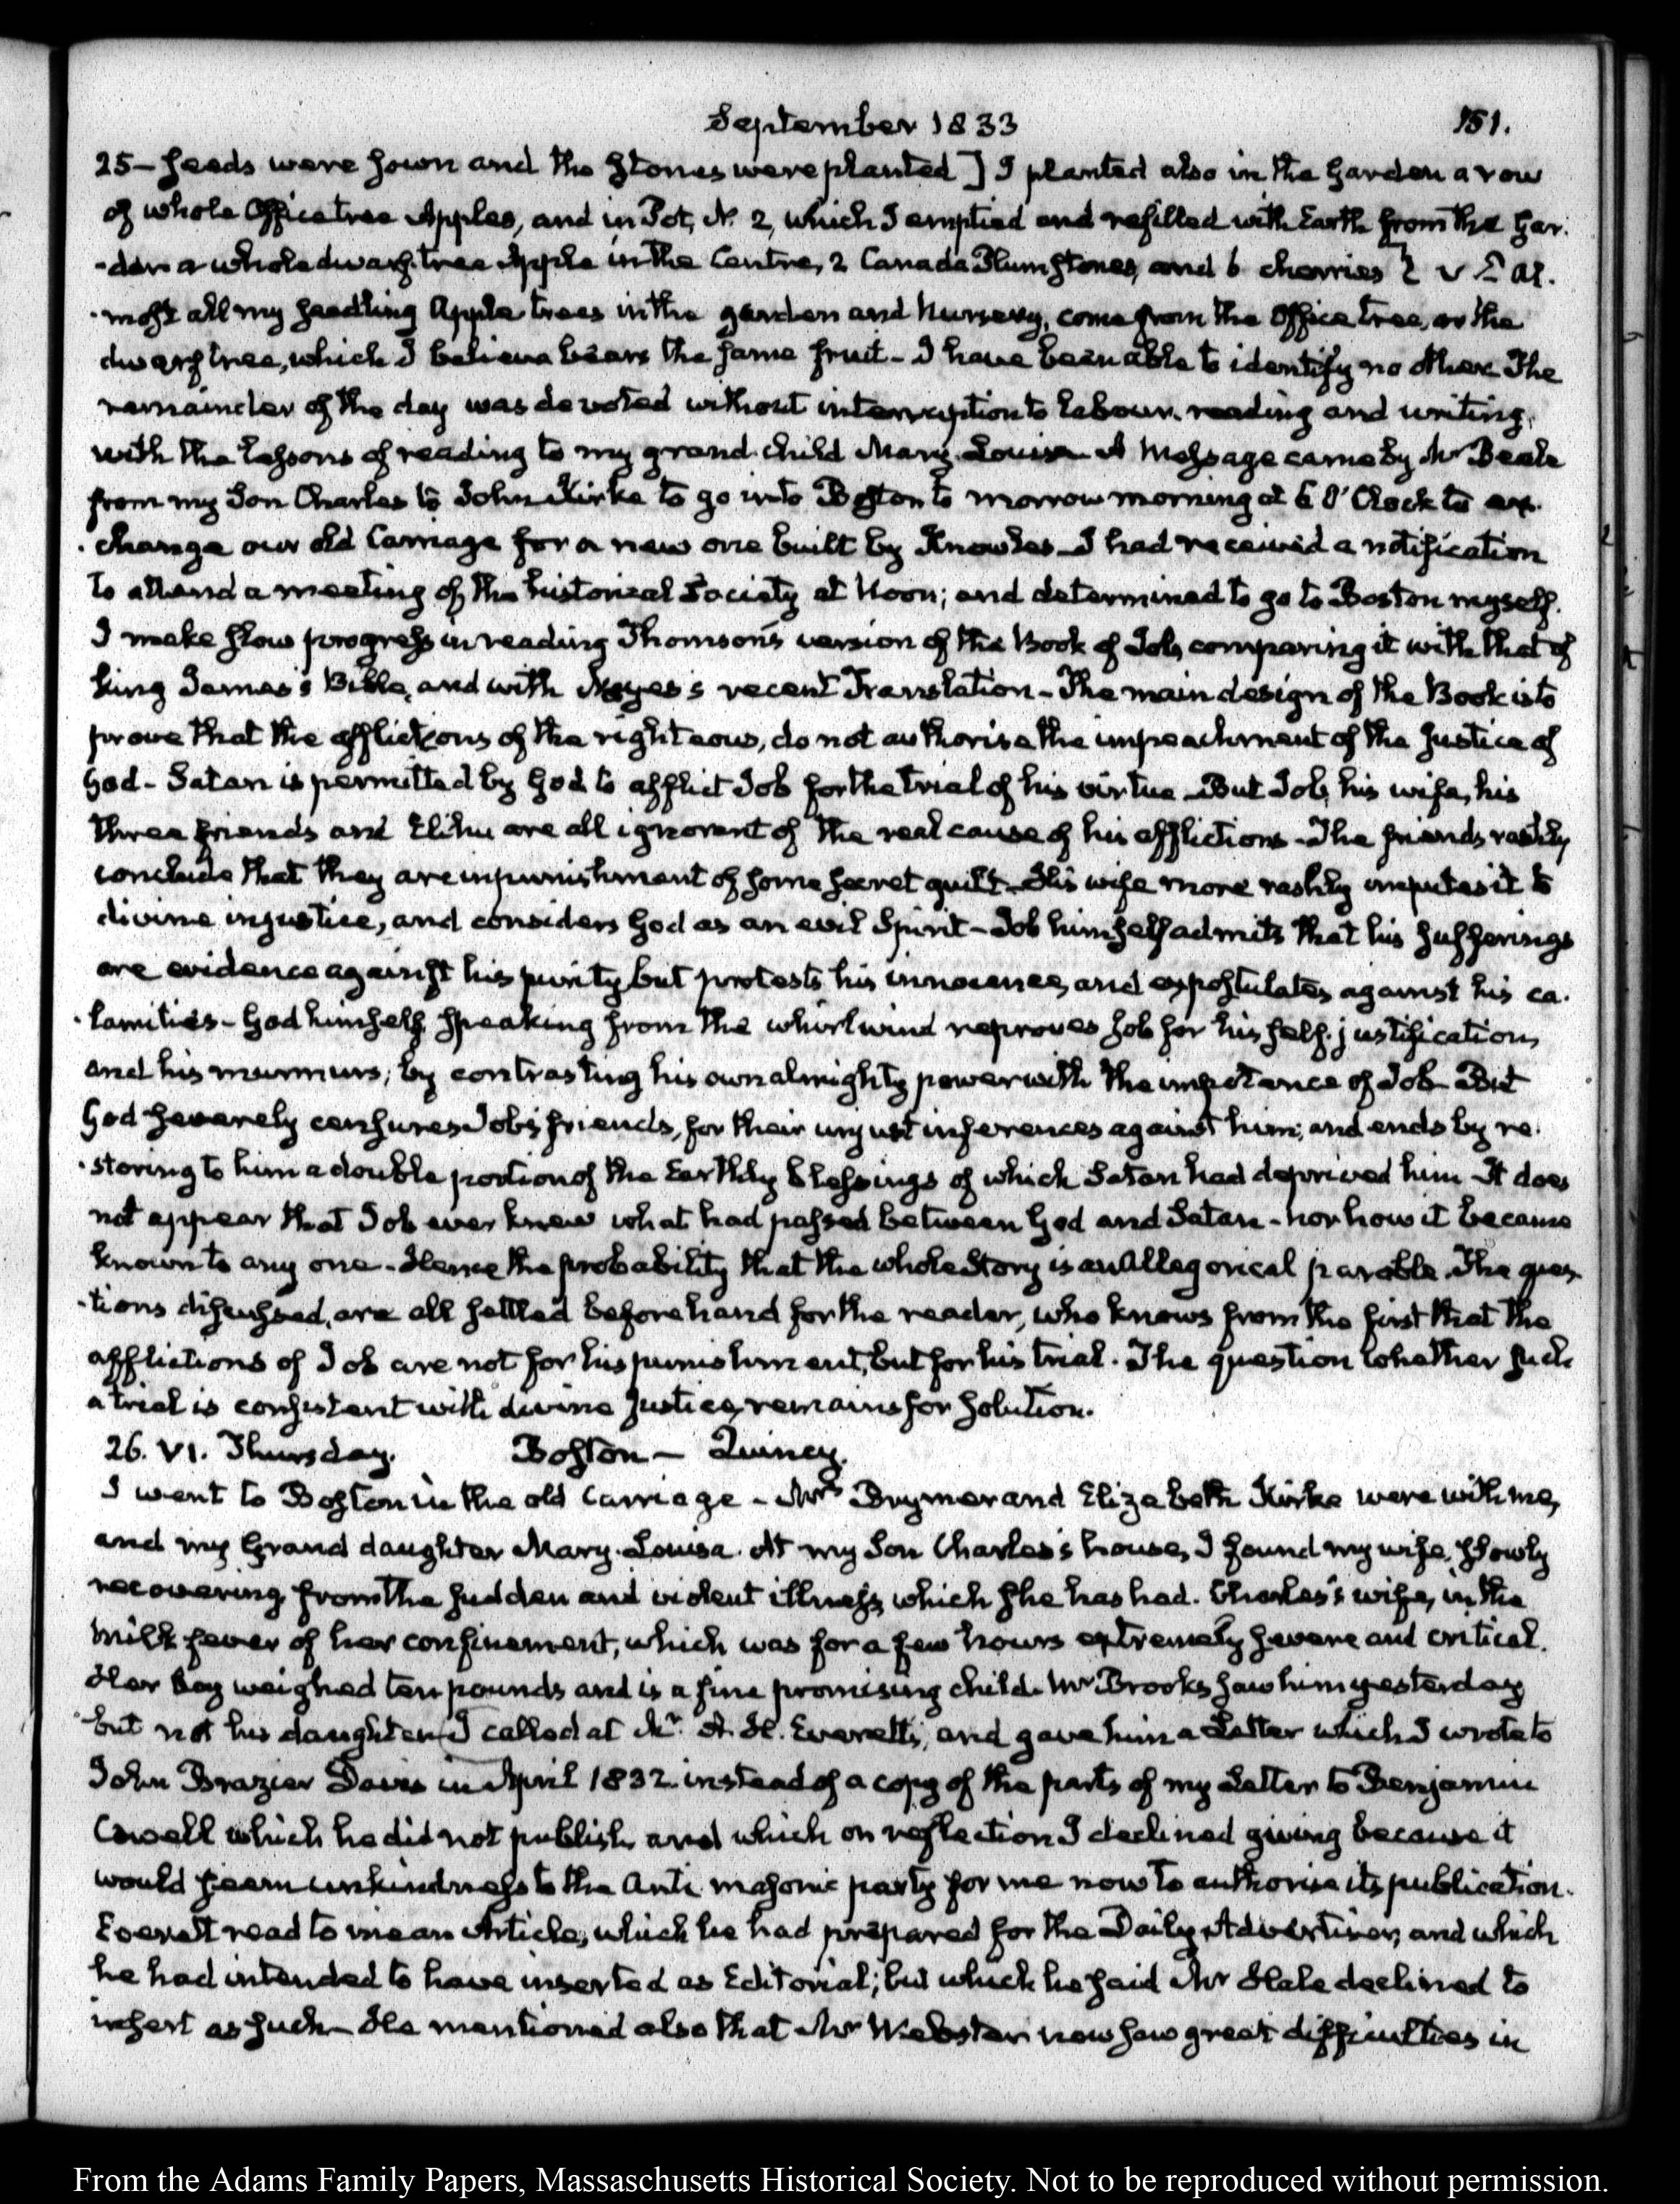 September 1833
151.
25 – seeds were sown and the stones were planted ] I planted also in the Garden a row
of whole Office tree Apples, and in Pot, N. 2, which I emptied and refilled with Earth from the Gar-
-den a whole dwarf-tree Apple in the Centre, 2 Canada Plum stones, and 6 cherries } Al-
-most all my seedling Apple trees in the garden and Nursery, come from the Office tree, or the
dwarf tree, which I believe bears the same fruit – I have been able to identify no other. The
remainder of the day was devoted without interruption to labour, reading and writing,
with the lessons of reading to my grand-child Mary-Louisa. A Message came by Mr Beale
from my Son Charles to John Kirke to go into Boston to morrow morning at 6 O'Clock to ex-
-change our old Carriage for a new one built by Knowles – I had received a notification
to attend a meeting of the historical Society at Noon; and determined to go to Boston myself.
I make slow progress in reading Thomson's version of the Book of Job, comparing it with that of
King James's Bible, and with Noyes's recent Translation – The main design of the Book is to
prove that the afflictions of the righteous, do not authorise the impeachment of the Justice of
God – Satan is permitted by God to afflict Job for the trial of his virtue – But Job, his wife, his
three friends and Elihu are all ignorant of the real cause of his afflictions – The friends rashly
conclude that they are in punishment of some secret guilt – His wife more rashly imputes it to
divine injustice, and considers God as an evil Spirit – Job himself admits that his sufferings
are evidence against his purity, but protests his innocence, and expostulates against his ca-
-lamities – God himself, speaking from the whirlwind reproves Job for his self-justification,
and his murmurs; by contrasting his own almighty power with the impotence of Job – But
God severely censures Job's friends, for their unjust inferences against him; and ends by re-
-storing to him a double portion of the Earthly blessings of which Satan had deprived him – It does
not appear that Job ever knew what had passed between God and Satan – nor how it became
known to any one – Hence the probability that the whole Story is an Allegorical parable. The ques-
-tions discussed, are all settled beforehand for the reader, who knows from the first that the
afflictions of Job are not for his punishment, but for his trial. The question whether such
a trial is consistent with divine Justice, remains for solution.
26. VI. Thursday. Boston – Quincy.
I went to Boston in the old Carriage – Mrs Drymer and Elizabeth Kirke were with me,
and my Grand daughter Mary-Louisa. At my Son Charles's house, I found my wife, slowly
recovering from the sudden and violent illness which she has had. Charles's wife, in the
milk fever of her confinement, which was for a few hours extremely severe and critical.
Her boy weighed ten pounds and is a fine promising child. Mr Brooks saw him yesterday
but not his daughter. I called at Mr. A. H. Everett's, and gave him a Letter which I wrote to
John Brazier Davis in April 1832 instead of a copy of the parts of my Letter to Benjamin
Cowell which he did not publish, and which on reflection I declined giving because it
would seem unkindness to the Anti masonic party for me now to authorise its publication.
Everett read to me an Article, which he had prepared for the Daily Advertiser, and which
he had intended to have inserted as Editorial; but which he said Mr Hale declined to
insert as such – He mentioned also that Mr Webster now saw great difficulties in
From the Adams Family Papers, Massachusetts Historical Society. Not to be reproduced without permission.